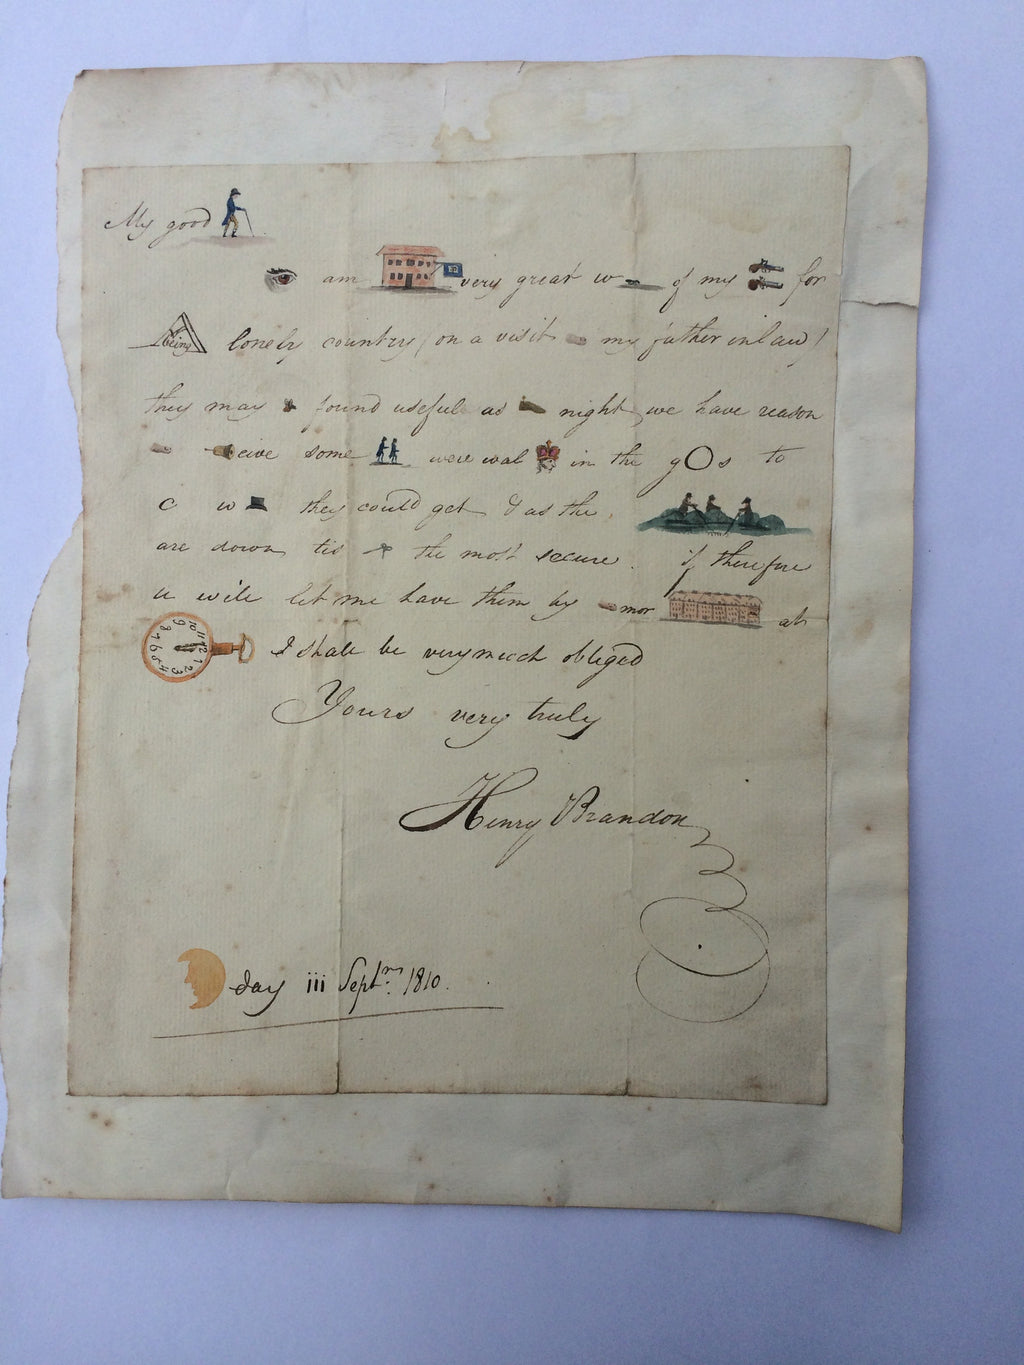 My good
am very great w of my for
Being lonely country (on a visit my father in law)
they may found useful as night, we have reason
ceive some were wal in the gOs to
c w they could get & as the
are down tis the most secure. if therefore
u will let me have them by mor at
10 11 12 1 2 3 4 5 6 7 8 9 I shall be very much obliged
Yours very truly
Henry Brandon
day iii Septr. 1810.